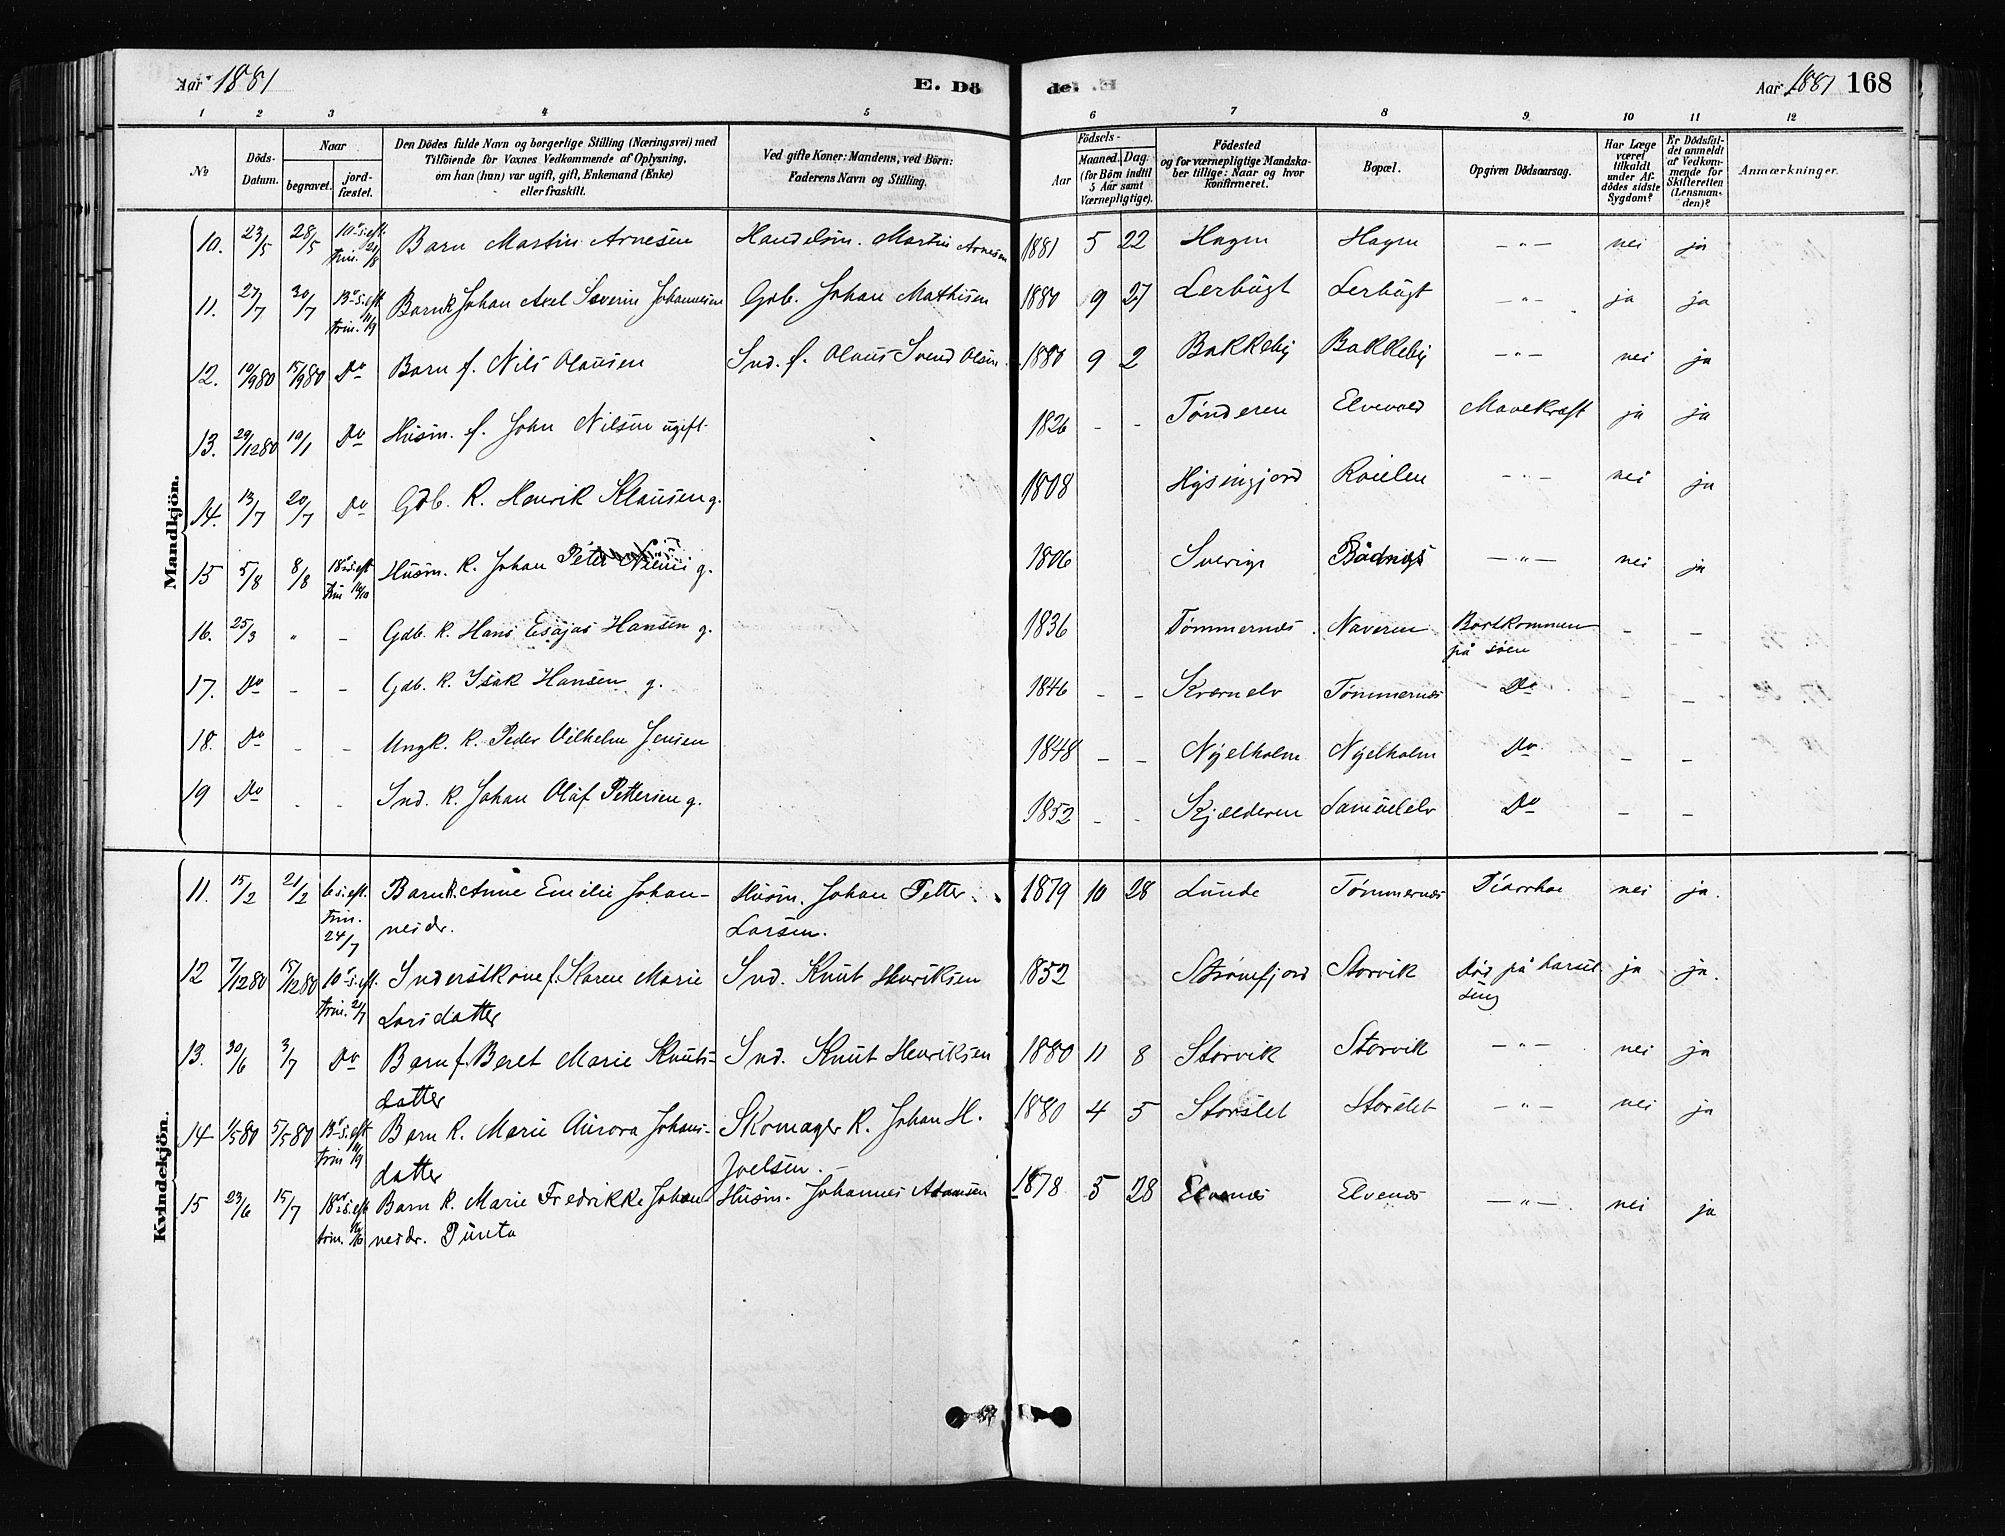 Aar 1881 E. Dö de. Aar 1881 168
1 2 3 4 5 6 7 8 9 10 11 12
№ Döds-Datum. Naar begravet. jord-fæstet. Den Dödes fulde Navn og borgerlige Stilling (Næringsvei) med Tilföiende for Voxnes Vedkommende af Oplysning, om han (hun) var ugift, gift, Enkemand (Enke) eller fraskilt. Ved gifte Koner: Mandens, ved Börn: Faderens Navn og Stilling. Födsels- Aar Maaned. Dag. (for Börn indtil 5 Aar samt Værnepligtige). Födested og for værnepligtige Mandska-ber tillige: Naar og hvor konfirmeret. Bopæl. Opgiven Dödsaarsag. Har Læge været tilkaldt under Af-dödes sidste Sygdom? Er Dödsfal-det anmeldt af Vedkom-mende for Skifteretten (Lensman-den)? Anmærkninger.
Mandkjön.
10. 23/5 28/5 10 s. eft. trin. 21/8 Barn Martin Arnesen Handelsm. Martin Arnesen 1881 5 22 Hagen Hagen —„— nei ja
11. 27/7 30/7 13 s. eft. trin. 11/9 Barn K. Johan Axel Severin Johannesen Gdb. Johan Mathisen 1880 9 27 Lerbugt Lerbugt —„— ja ja
12. 10/9 80 15/9 80 Do Barn f. Nils Olausen Ind. f. Olaus Svend Olsen 1880 9 2 Bakkeby Bakkeby —„— nei ja
13. 29/12 80 10/1 Do Husm. f. John Nilsen ugift. 1826 - - Tønderen Elvevold Mavekræft ja ja
14. 13/7 20/7 Do Gdb. K. Henrik Klausen g. 1808 Hysingjord Roielen —„— nei ja
15 5/8 8/8 18 s. eft. trin 16/10 Husm. K. Johan Peter Niemi g. 1806 Sverige —„— nei ja
16. 25/3 „ - Gdb. K. Hans Esajas Hansen g. 1836 Tømmernes Naveren Bortkommen - -
på søen
17. Do - - Gdb. K. Isak Hansen g. 1846 - - Kvernelv Tømmernes Do - -
18. Do - - Ungk. K. Peder Vilhelm Jensen 1848 - - Nyelholm Nyelholm Do - -
19 Do - - Ind. K. Johan Olaf Pettersen g. 1852 - - Kjælderen Samuelelv Do - -
Kvindekjön.
11. 15/2 21/2 6 s. eft. trin. 24/7 Barn K. Anne Emilie Johan- Husm. Johan Petter 1879 10 28 Lunde Tømmernes Diarrhoe nei ja.
nesdr. Larsen.
12 7/12 80 15/12 80 10 s. eft. trin. 24/7 Inderstkone f. Karen Marie Ind. Knut Henriksen 1852 Strømfjord Storvik Død på barsel ja ja.
Larsdatter seng
13. 30/6 3/7 Do Barn f. Beret Marie Knuts- Ind. Knut Henriksen 1880 11 8 Storvik Storvik —„— nei ja
datter
14 1/5 80 5/5 80 13 s. eft. trin 11/9 Barn K. Marie Aurora Johans- Skomager K. Johan H. 1880 4 5 Storslet Storslet —„— nei ja
datter Joelsen.
15 23/6 15/7 18 s. eft. trin. 16/10 Barn K. Marie Fredrikke Johan Husm. Johannes Adamsen 1878 5 28 Elvenes Elvenes —„— nei ja
nesdr. Punta